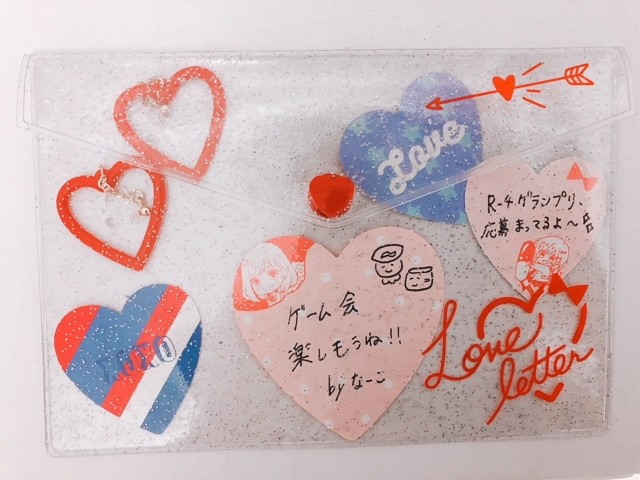 Love
R-4グランプリ、
応募まってるよ〜
ゲーム会
楽しもうね!!
by なーこ
Love
letter